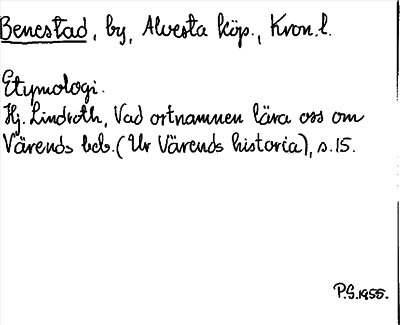 Benestad, by, Alvesta köp., Kron.l.
Etymologi.
Hj. Lindroth, Vad ortnamnen lära oss om
Värends beb. (Ur Värends historia), s.15.
P.G.1955.